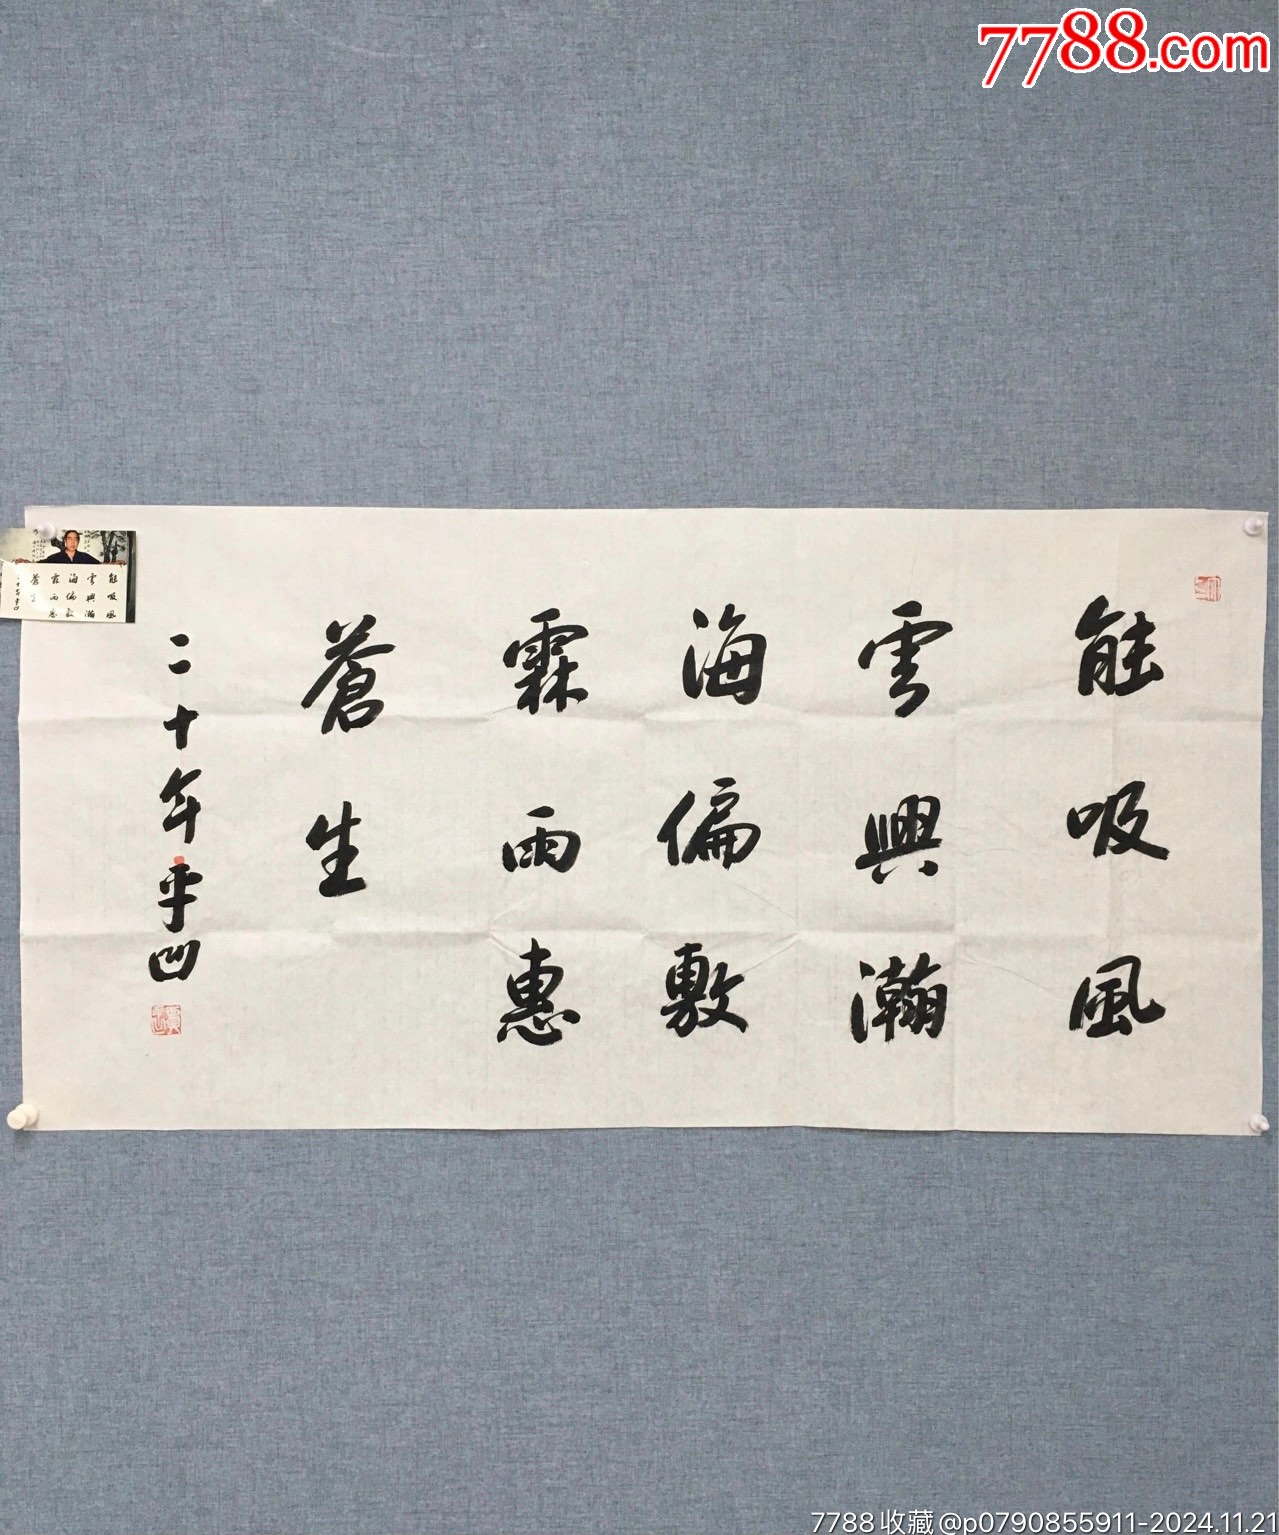 7788.com
能吸風
雲興瀚
海偏敷
霖雨惠
蒼生
二十年平凹
7788收藏@p0790855911-2024.11.21